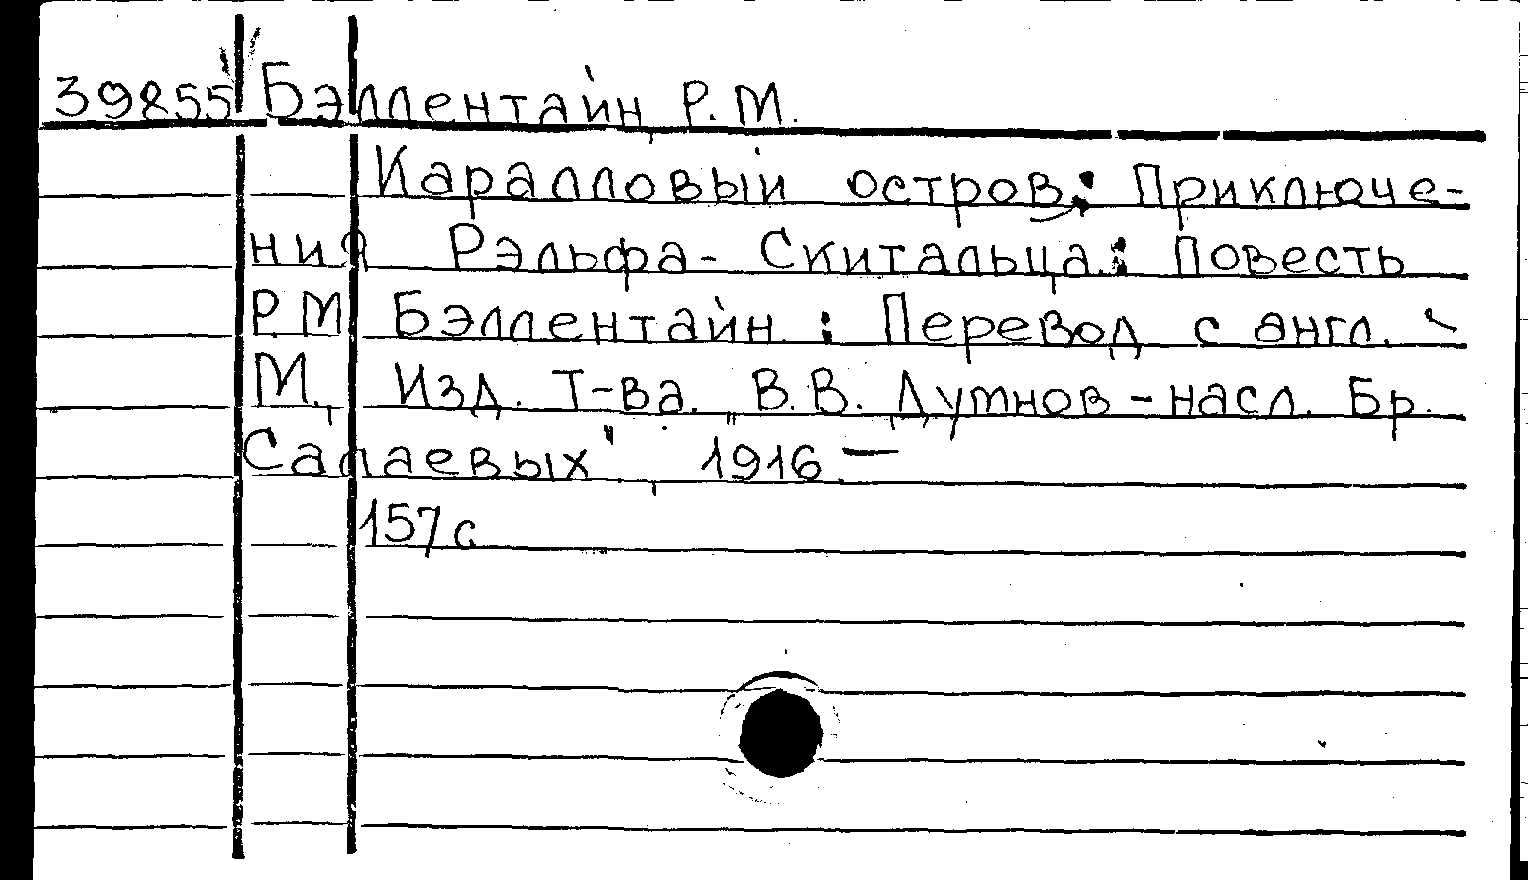 39855 Бэллентайн Р.М.
Каралловый остров: Приключе-
ния Рэльфа-Скитальца: Повесть
Р.М. Бэллентайн : Перевод с англ. -
М., Изд. Т-ва „В.В. Думнов-насл. Бр.
Салаевых", 1916 —
157 с